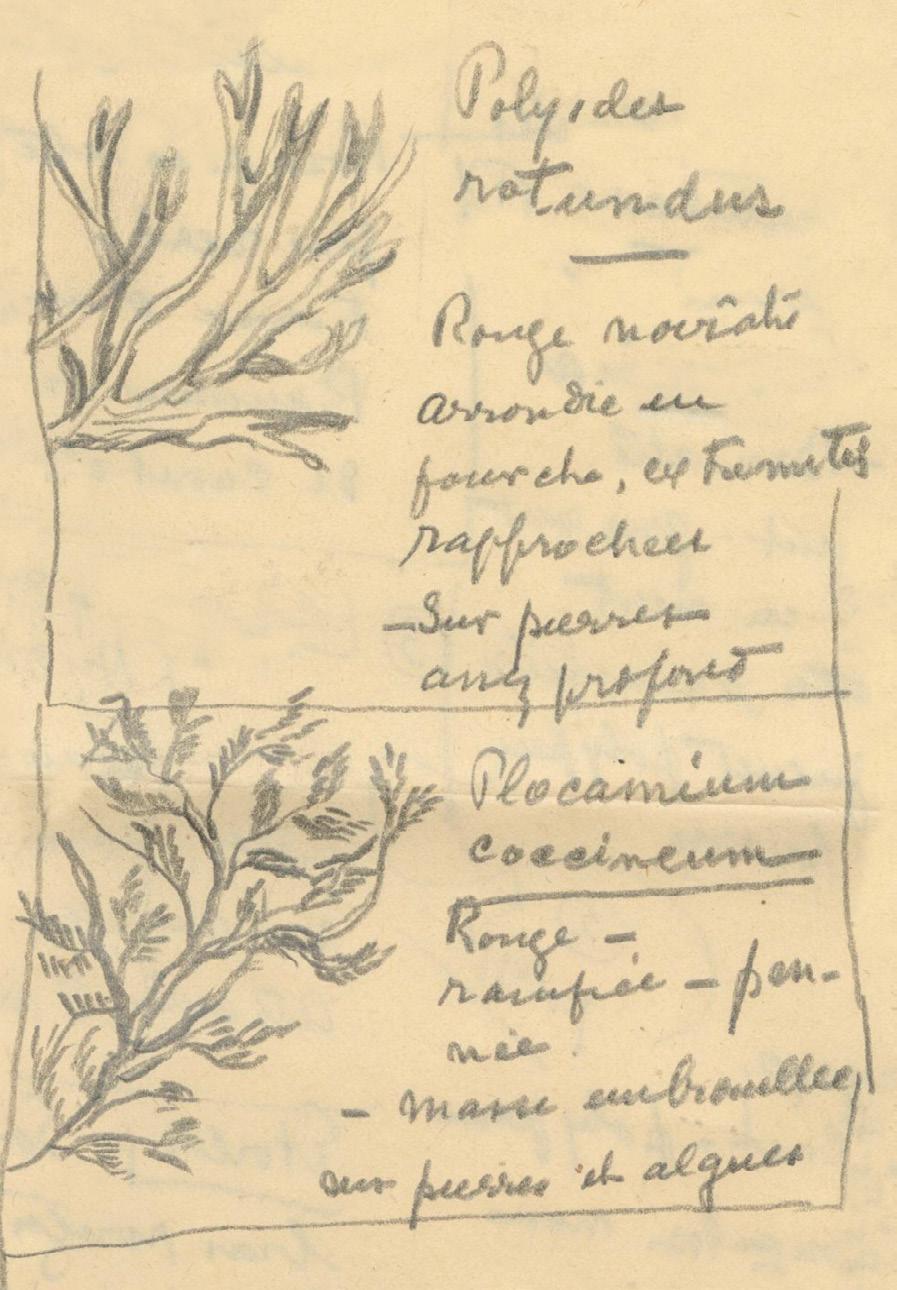 Polyides
rotundus
Rouge noirâtre
arrondie en
fourche, extremités
rapprochées
- Sur pierres
assez profond
Plocamium
coccineum
Rouge -
ramifiée - pen-
née
- Masse embrouillée,
sur pierres et algues